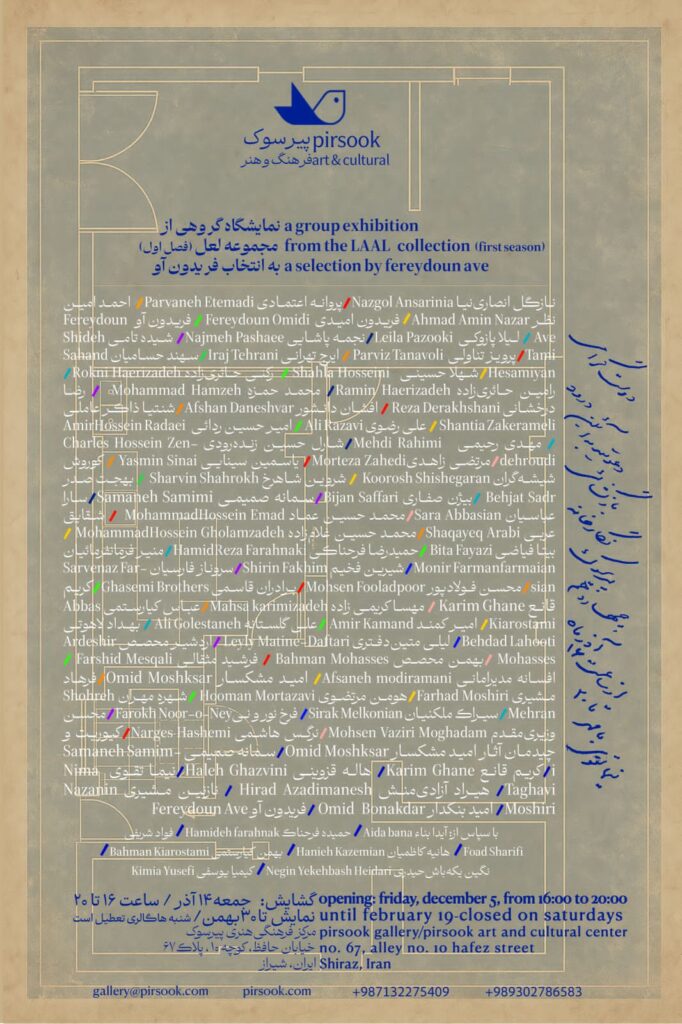 پیرسوک pirsook
فرهنگ و هنر art & cultural
نمایشگاه گروهی از a group exhibition
مجموعه لعل (فصل اول) from the LAAL collection (first season)
به انتخاب فریدون آو a selection by fereydoun ave
نازگل انصاری‌نیا Nazgol Ansarinia / پروانه اعتمادی Parvaneh Etemadi / احمد امین
نظر Ahmad Amin Nazar / فریدون امیدی Fereydoun Omidi / فریدون آو Fereydoun
Ave / لیلا پازوکی Leila Pazooki / نجمه پاشایی Najmeh Pashaee / شیده تامی Shideh
Tami / پرویز تناولی Parviz Tanavoli / ایرج تهرانی Iraj Tehrani / سهند حسامیان Sahand
Hesamiyan / شهلا حسینی Shahla Hosseini / رکنی حائری‌زاده Rokni Haerizadeh /
رامین حائری‌زاده Ramin Haerizadeh / محمد حمزه Mohammad Hamzeh / رضا
درخشانی Reza Derakhshani / افشان دانشور Afshan Daneshvar / شنتیا ذاکرعاملی
Shantia Zakerameli / علی رضوی Ali Razavi / امیر حسین ردائی AmirHossein Radaei
/ مهدی رحیمی Mehdi Rahimi / شارل حسین زنده‌رودی Charles Hossein Zen-
dehroudi / مرتضی زاهدی Morteza Zahedi / یاسمین سینایی Yasmin Sinai / کوروش
شیشه‌گران Koorosh Shishegaran / شروین شاهرخ Sharvin Shahrokh / بهجت صدر
Behjat Sadr / بیژن صفاری Bijan Saffari / سمانه صمیمی Samaneh Samimi / سارا
عباسیان Sara Abbasian / محمد حسین عماد MohammadHossein Emad / شقایق
عربی Shaqayeq Arabi / محمد حسین غلامزاده MohammadHossein Gholamzadeh /
بیتا فیاضی Bita Fayazi / حمیدرضا فرحناکی HamidReza Farahnaki / منیر فرمانفرمائیان
Monir Farmanfarmaian / شیرین فخیم Shirin Fakhim / سروناز فارسیان Sarvenaz Far-
sian / محسن فولادپور Mohsen Fooladpoor / برادران قاسمی Ghasemi Brothers / کریم
قانع Karim Ghane / مهسا کریمی زاده Mahsa karimizadeh / عباس کیارستمی Abbas
Kiarostami / امیر کمند Amir Kamand / علی گلستانه Ali Golestaneh / بهداد لاهوتی
Behdad Lahooti / لیلی متین دفتری Leyly Matine-Daftari / اردشیر محصص Ardeshir
Mohasses / بهمن محصص Bahman Mohasses / فرشید مثقالی Farshid Mesqali /
افسانه مدیرامانی Afsaneh modiramani / امید مشکسار Omid Moshksar / فرهاد
مشیری Farhad Moshiri / هومن مرتضوی Hooman Mortazavi / شهره مهران Shohreh
Mehran / سیراک ملکنیان Sirak Melkonian / فرخ نورونی Farokh Noor-o-Ney / محسن
وزیری‌مقدم Mohsen Vaziri Moghadam / نرگس هاشمی Narges Hashemi / کیوریت و
چیدمان آثار امید مشکسار Omid Moshksar / سمانه صمیمی Samaneh Samim-
i / کریم قانع Karim Ghane / هاله قزوینی Haleh Ghazvini / نیما تقوی Nima
Taghavi / هیراد آزادی‌منش Hirad Azadimanesh / نازنین مشیری Nazanin
Moshiri / امید بنکدار Omid Bonakdar / فریدون آو Fereydoun Ave
با سپاس از: آیدا بناء Aida bana / حمیده فرحناک Hamideh farahnak / فواد شریفی
Foad Sharifi / هانیه کاظمیان Hanieh Kazemian / بهمن کیارستمی Bahman Kiarostami /
نگین یکه‌باش حیدری Negin Yekehbash Heidari / کیمیا یوسفی Kimia Yusefi
گشایش: جمعه ۱۴ آذر / ساعت ۱۶ تا ۲۰ opening: friday, december 5, from 16:00 to 20:00
نمایش تا ۳۰ بهمن / شنبه هاگالری تعطیل است until february 19-closed on saturdays
مرکز فرهنگی هنری پیرسوک pirsook gallery/pirsook art and cultural center
خیابان حافظ، کوچه ۱۰، پلاک ۶۷ no. 67, alley no. 10 hafez street
ایران، شیراز Shiraz, Iran
gallery@pirsook.com pirsook.com +987132275409 +989302786583